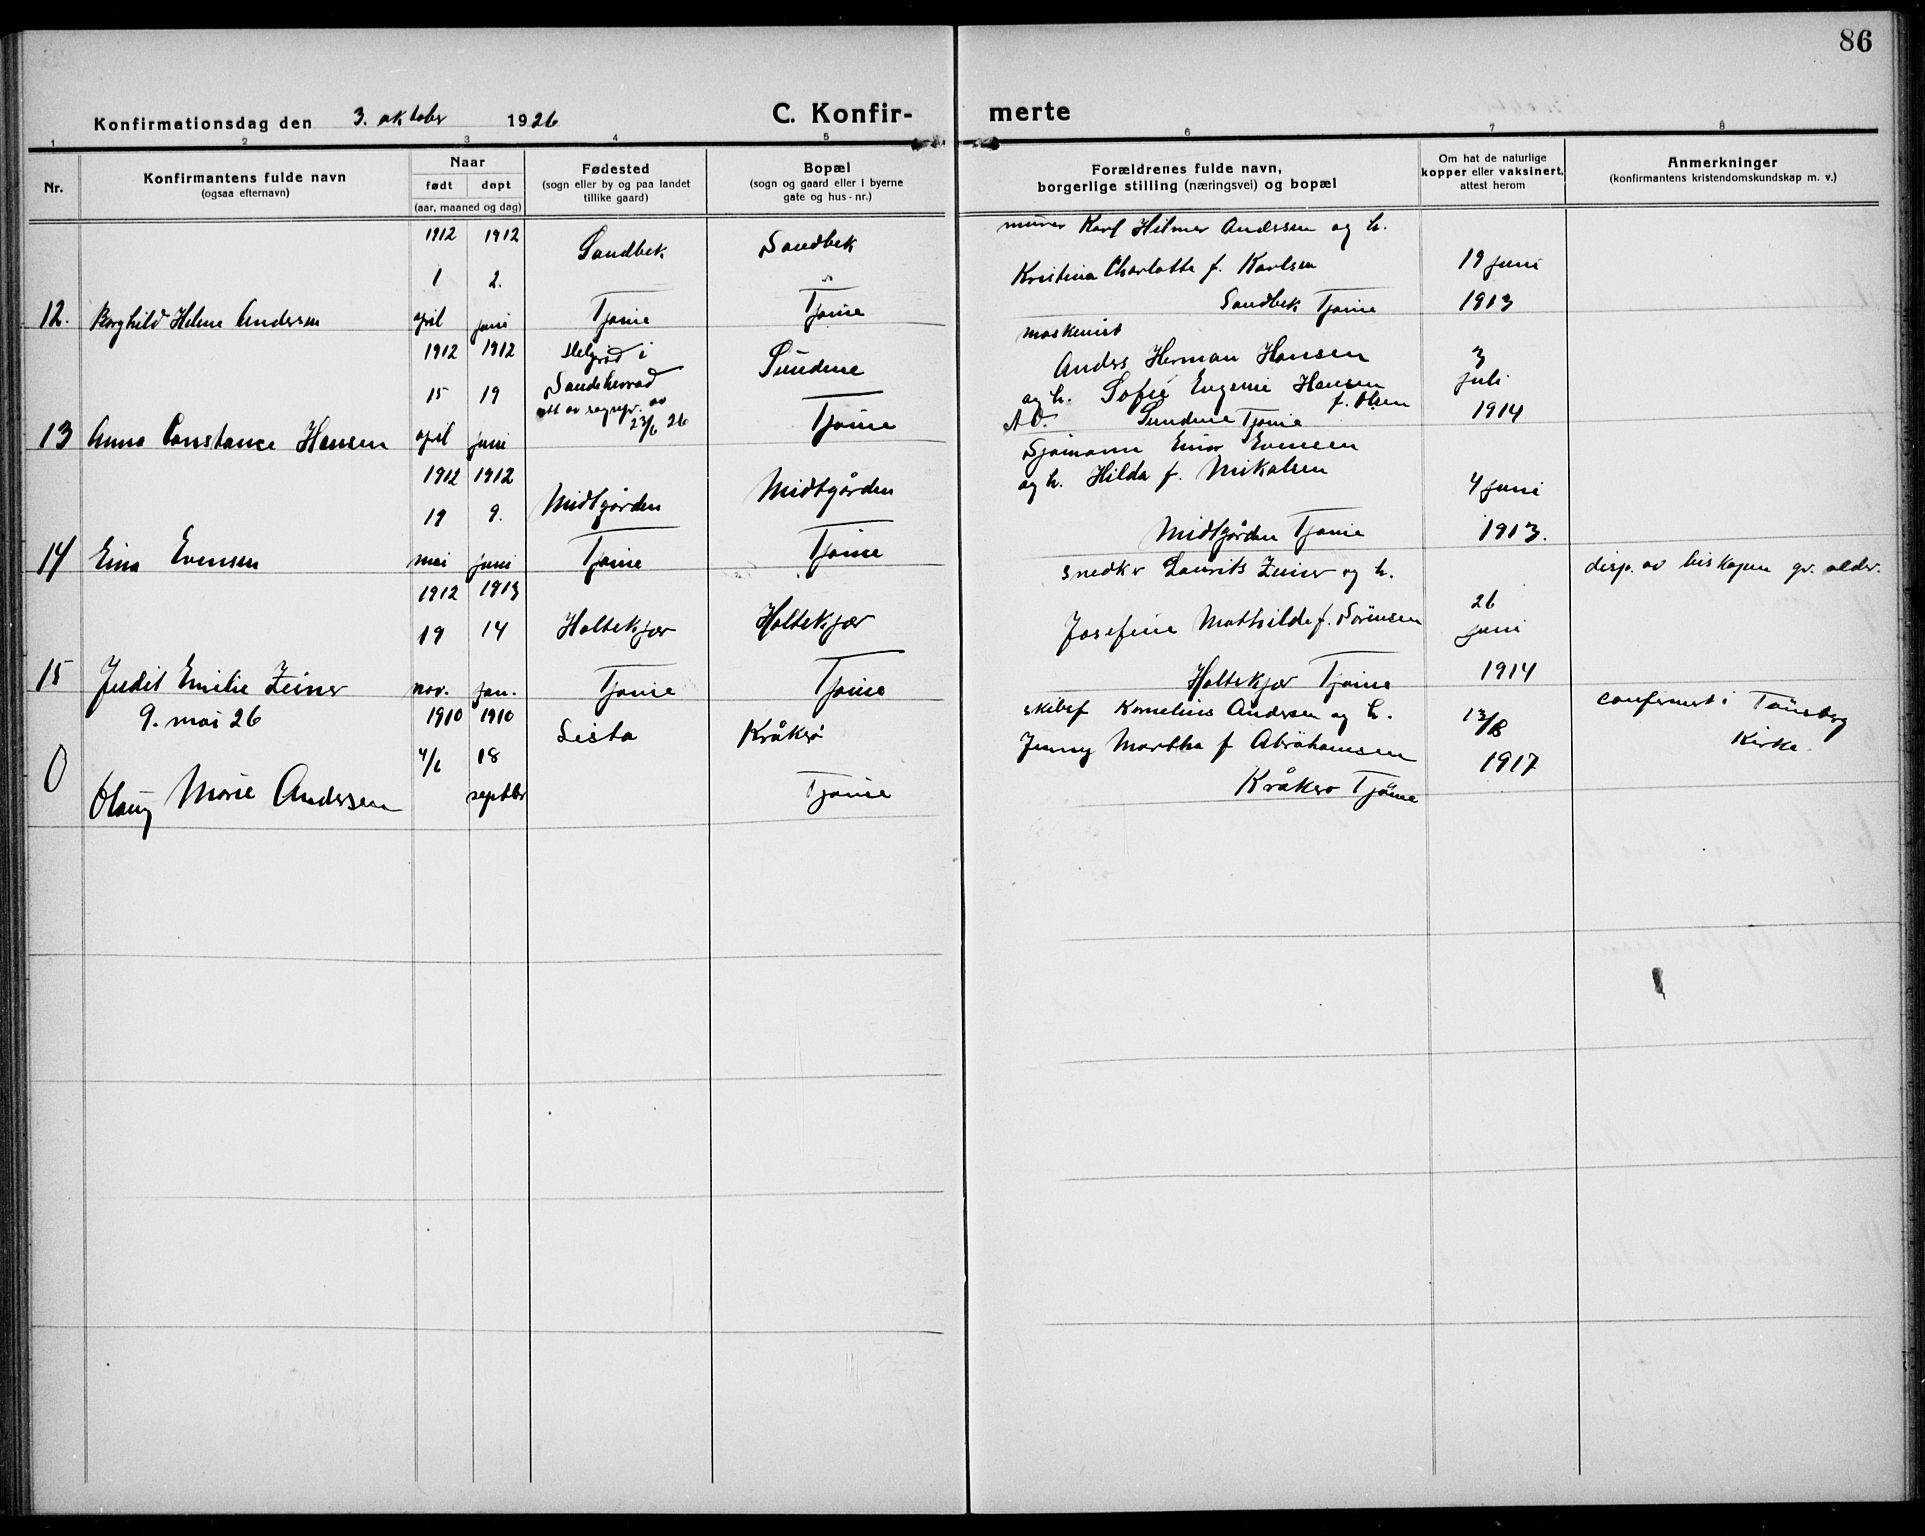 86
Konfirmationsdag den 3. oktober 1926
C. Konfir- merte
1 2 3 4 5 6 7 8
Nr.
Konfirmantens fulde navn
(ogsaa efternavn)
Naar
født døpt
(aar, maaned og dag)
Fødested
(sogn eller by og paa landet
tillike gaard)
Bopæl
(sogn og gaard eller i byerne
gate og hus-nr.)
Forældrenes fulde navn,
borgerlige stilling (næringsvei) og bopæl
Om hat de naturlige
kopper eller vaksinert,
attest herom
Anmerkninger
(konfirmantens kristendomskundskap m. v.)
12. Borghild Helene Andersen
1912 1912
1 2.
april juni
Sandbek
Tjøme
Sandbek
Tjøme
murer Karl Hilmer Andersen og h.
Kristina Charlotte f. Karlsen
Sandbek Tjøme
19 juni
1913
13 Anna Constance Hansen
1912 1912
15 19
april juni
Helgerød i
Sandeherred
att av sognepr. av
23/6 26
Sundene
Tjøme
maskenist
Anders Herman Hansen
og h. Sofie Eugenie Hansen
f. Olsen
Sundene Tjøme
3
juli
1914
14 Eina Evensen
1912 1912
19 9.
mai juni
Midtgården
Tjøme
Midtgården
Tjøme
Sjømann Einar Evensen
og h. Hilda f. Mikalsen
Midtgården Tjøme
4 juni
1913.
15 Judit Emilie Zeiner
1912 1913
19 14
nov. jan.
Holtekjær
Tjøme
Holtekjær
Tjøme
snedker Laurits Zeiner og h.
Josefine Mathilde f. Sørensen
Holtekjær Tjøme
26
juni
1914
disp. av biskopen gr. alder.
9. mai 26
0 Olaug Marie Andersen
1910 1910
4/6 18
septbr
Lista
Kråkerø
Tjøme
skibsf Kornelius Andersen og h.
Jenny Martha f Abrahamsen
Kråkerø Tjöme
13/8
1917
confirmert i Tönsberg
Kirke.